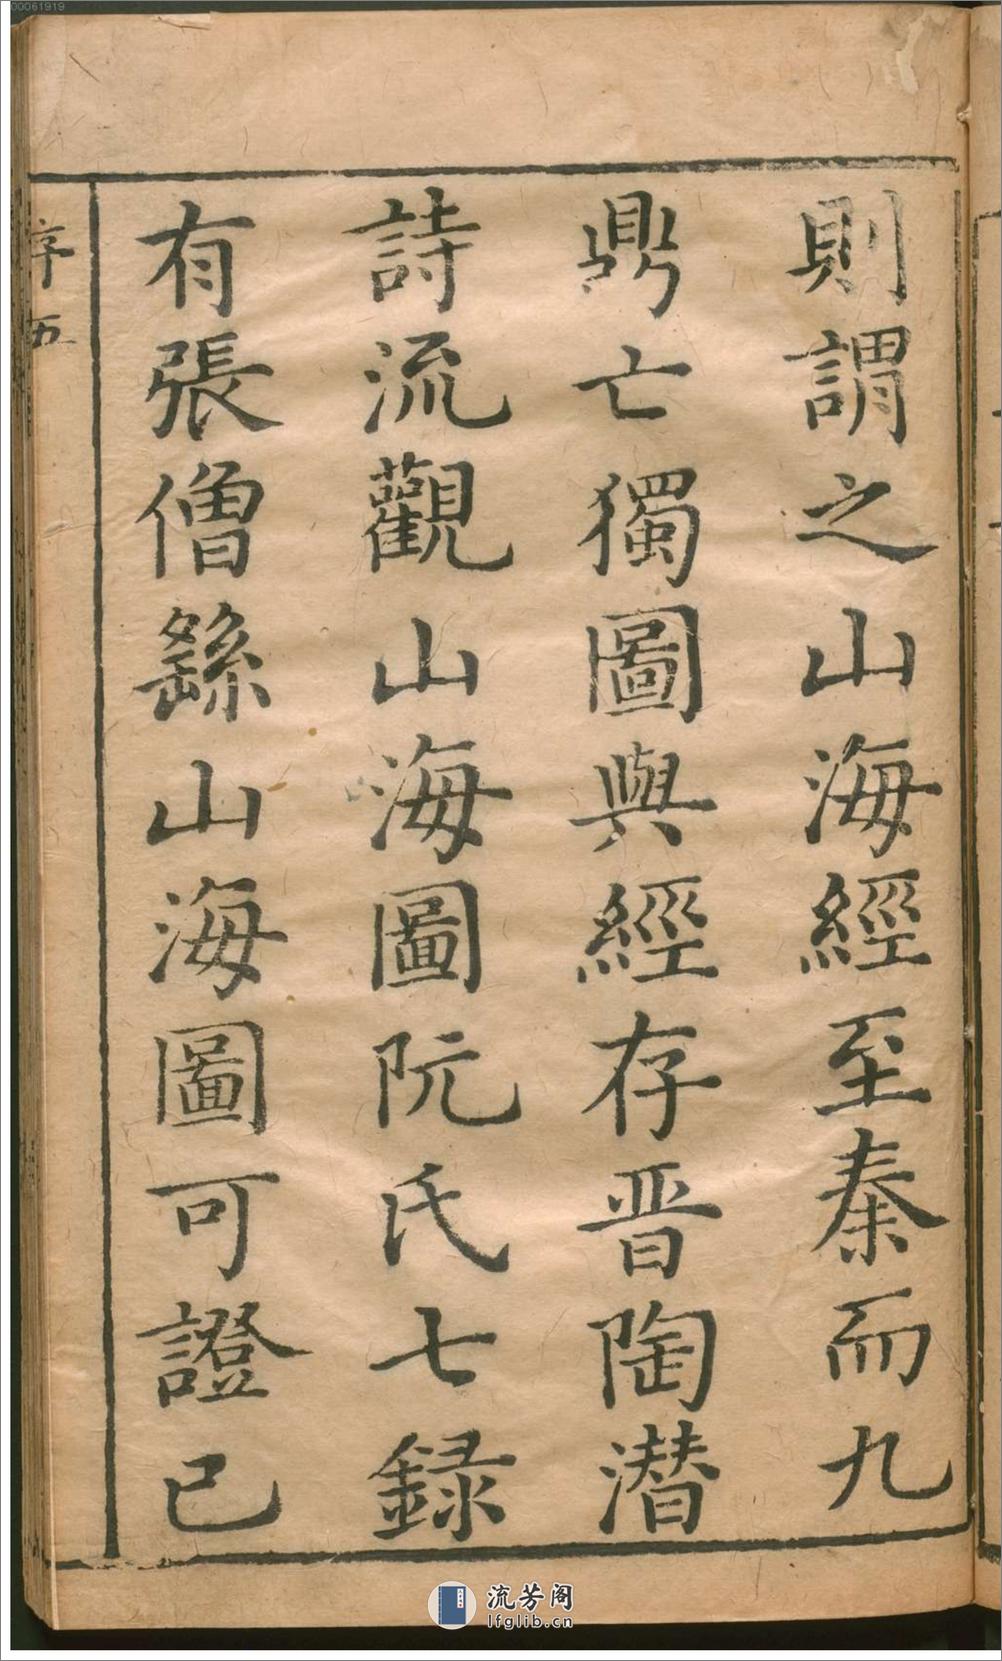 00061919
則謂之山海經至秦而九
鼎亡獨圖與經存晋陶潜
詩流觀山海圖阮氏七録
有張僧繇山海圖可證已
序五
流芳阁
lfglib.cn